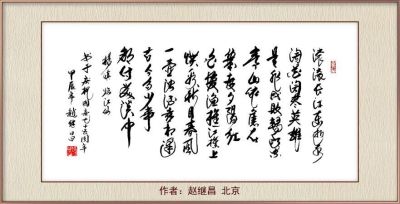 滚滚长江东逝水
浪花淘尽英雄
是非成败转头空
青山依旧在
几度夕阳红
白发渔樵江渚上
惯看秋月春风
一壶浊酒喜相逢
古今多少事
都付笑谈中
杨慎临江仙
甲辰年赵继昌
作者：赵继昌 北京